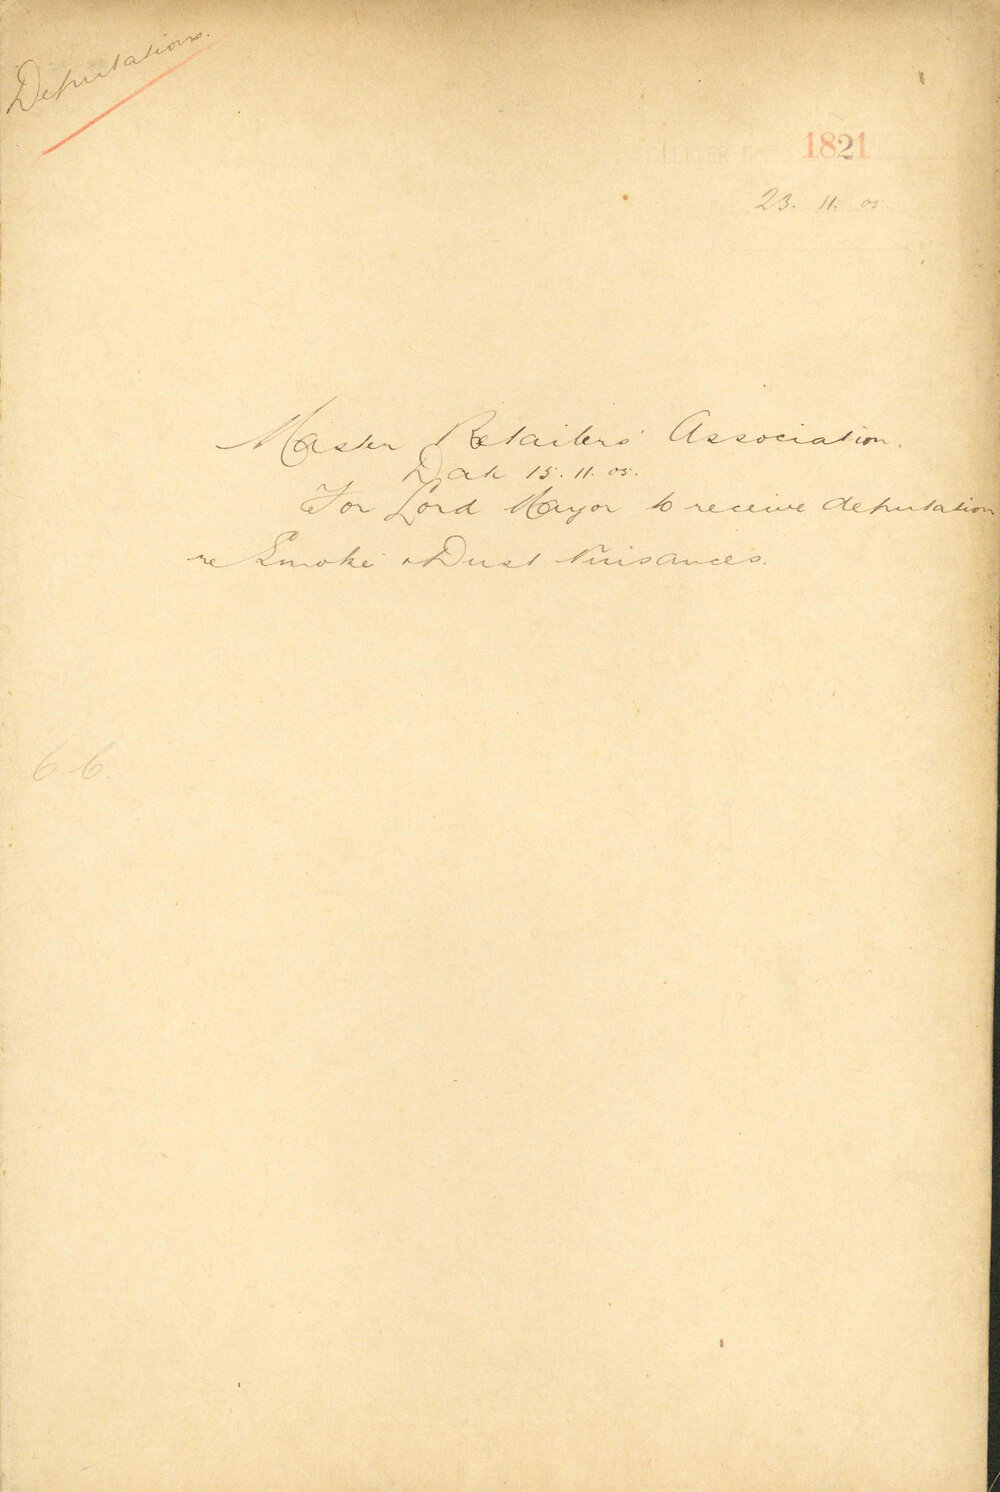 Deputations.
LETTER 1821
23. 11. 05.
Master Retailers' Association.
Date 15. 11. 05.
For Lord Mayor to receive deputation
re Smoke & Dust Nuisances.